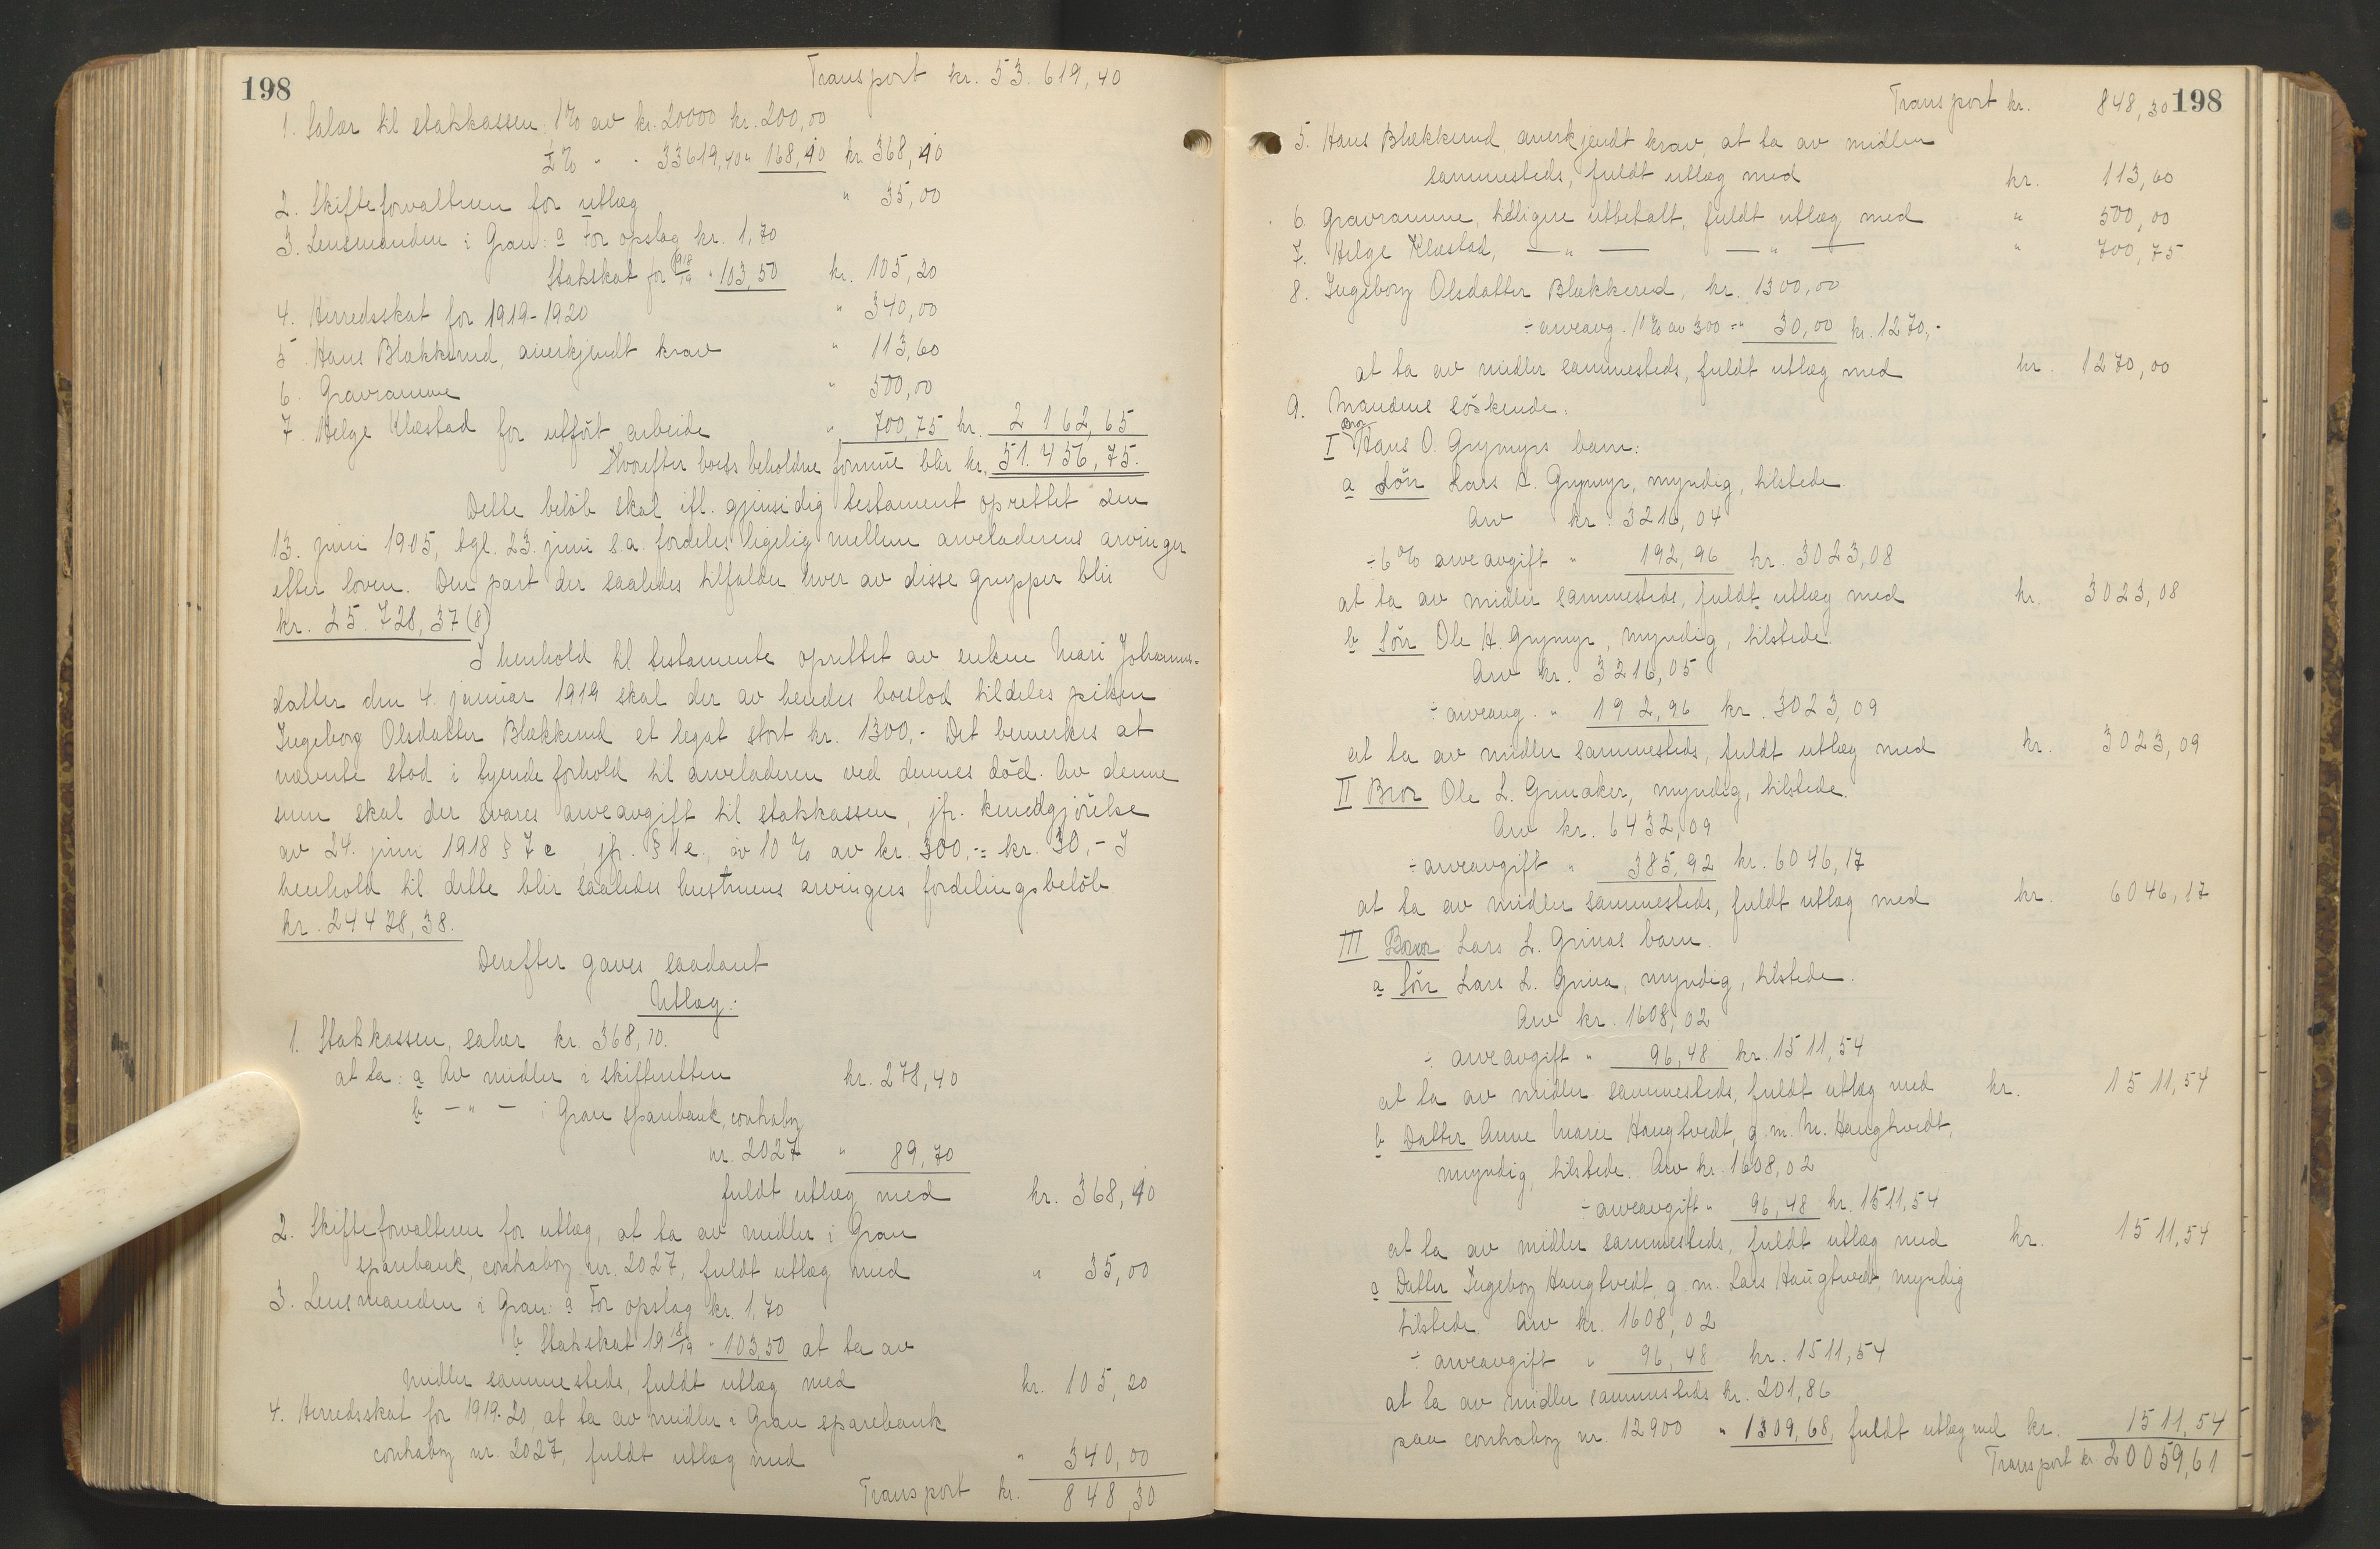 198
Transport kr. 53.619,40
1. Salær til statskassen 1% av kr. 20000 kr. 200,00
½% " " 33619,40 " 168,10 kr. 368,10
2. Skifteforvalteren for utlæg " 35,00
3. Lensmanden i Gran: a For opslag kr. 1,70
Statskat for 1918/19 " 103,50 kr. 105,20
4. Herredsskat for 1919-1920 " 340,00
5. Hans Blækkerud, anerkjendt krav " 113,60
6. Gravramme " 500,00
7. Helge Klæstad for utført arbeide " 700,75 kr. 2 162,65
Hvorefter boets beholdne formue blir kr. 51.456,75.
Dette beløb skal ifl. gjensidig testament oprettet den
13. juni 1905, tgl. 23. juni s.a. fordeles ligelig mellem arveladerens arvinger
efter loven. Den part der saaledes tilfalder hver av disse grupper blir
kr. 25.728,37 (8)
I henhold til testamente oprettet av enken Mari Johannes-
datter den 4. januar 1919 skal der av hendes boeslod tildeles piken
Ingeborg Olsdatter Blækkerud et legat stort kr. 1300,- Det bemerkes at
nævnte stod i tyende forhold til arveladeren ved dennes død. Av denne
sum skal der svares arveavgift til statskassen, jfr. kundgjørelse
av 24. juni 1918 § 7 c, jfr. § 1 e., av 10% av kr. 300,- = kr. 30,- I
henhold til dette blir saaledes hustruens arvingers fordelingsbeløb
kr. 24428,38.
Derefter gaves saadant
Utlæg:
1. Statskassen, salær kr. 368,10.
at ta: a Av midler i skifteretten kr. 278,40
b - " - i Gran sparebank, contrabog
nr. 2027 " 89,70
fuldt utlæg med kr. 368,10
2. Skifteforvalteren for utlæg, at ta av midler i Gran
sparebank, contrabog nr. 2027, fuldt utlæg med " 35,00
3. Lensmanden i Gran: a For opslag kr. 1,70
b Statsskat 1918/19 " 103,50 at ta av
midler sammesteds, fuldt utlæg med kr. 105,20
4. Herredsskat for 1919-20, at ta av midler i Gran sparebank
contrabog nr. 2027, fuldt utlæg med " 340,00
Transport kr. 848,30
Transport kr. 848,30 198
5. Hans Blækkerud, anerkjendt krav, at ta av midler
sammesteds, fuldt utlæg med kr. 113,60
6. Gravramme, tidligere utbetalt, fuldt utlæg med " 500,00
7. Helge Klæstad, - " - - " - " 700,75
8. Ingeborg Olsdatter Blækkerud, kr. 1300,00
÷ arveavg. 10% av 300 = " 30,00 kr. 1270,-
at ta av midler sammesteds, fuldt utlæg med kr. 1270,00
9. Mandens söskende:
Bror
I Hans O. Grymyrs barn:
a Sön Lars H. Grymyr, myndig, tilstede
Arv kr. 3216,04
÷ 6% arveavgift " 192,96 kr. 3023,08
at ta av midler sammesteds, fuldt utlæg med kr. 3023,08
b Sön Ole H. Grymyr, myndig, tilstede.
Arv kr. 3216,05
÷ arveavg. " 192,96 kr. 3023,09
at ta av midler sammesteds, fuldt utlæg med kr. 3023,09
II Bror Ole L. Grinaker, myndig, tilstede.
Arv kr. 6432,09
÷ arveavgift " 385,92 kr. 6046,17
at ta av midler sammesteds, fuldt utlæg med kr. 6046,17
III Bror Lars L. Grinas barn.
a Sön Lars L. Grina, myndig, tilstede.
Arv kr. 1608,02
÷ arveavgift " 96,48 kr. 1511,54
at ta av midler sammesteds, fuldt utlæg med kr. 1511,54
b Datter Anne Marie Haugtvedt, g.m. M. Haugtvedt,
myndig, tilstede. Arv kr. 1608,02
÷ arveavgift " 96,48 kr. 1511,54
at ta av midler sammesteds, fuldt utlæg med kr. 1511,54
c Datter Ingeborg Haugtvedt, g.m. Lars Haugtvedt, myndig
tilstede. Arv kr. 1608,02
÷ arveavgift " 96,48 kr. 1511,54
at ta av midler sammesteds kr. 201,86
paa contrabog nr. 12900 " 1309,68, fuldt utlæg med kr. 1511,54
Transport kr. 20059,61